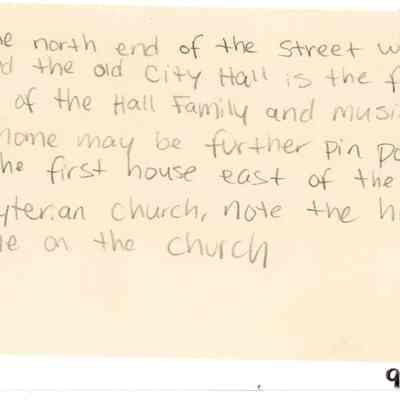 ne north end of the street w
d the old City Hall is the f
of the Hall Family and musi
home may be further pin po
he first house east of the
yterian church, note the h
le on the church
9